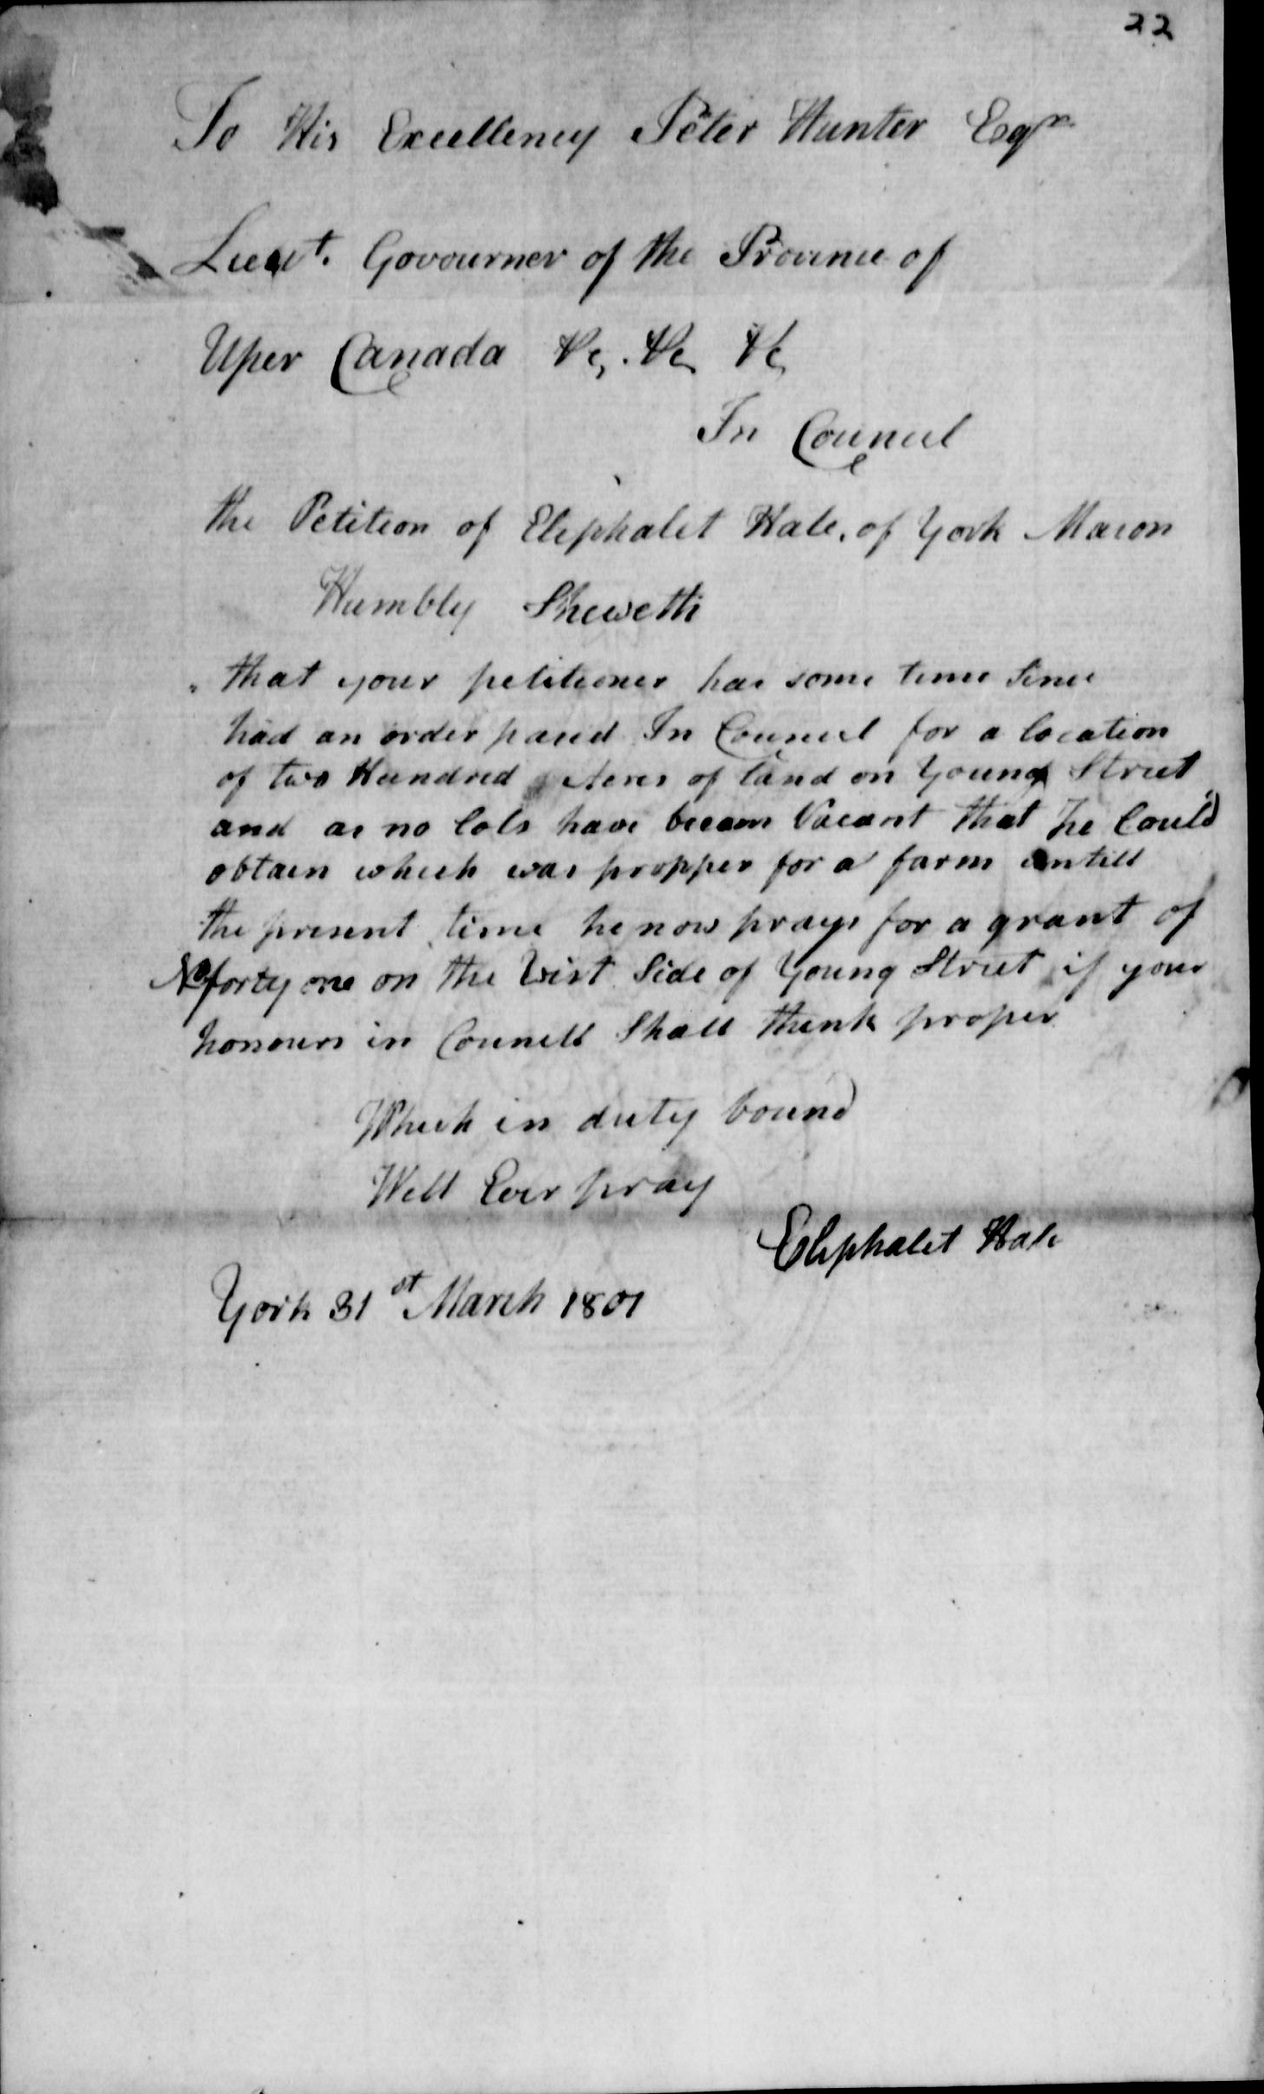 22
To His Excellency Peter Hunter Esqr.
Lieut. Govourner of the Province of
Uper Canada &c, &c &c
In Council
the Petition of Eliphalet Hale, of York Mason
Humbly Sheweth
that your petitioner has some time Since
had an order passd In Council for a location
of two Hundred Acres of Land on Young Street
and as no Lots have becom Vacant that he Could
obtain which was propper for a farm untill
the present time he now prays for a grant of
No forty one on the West Side of Young Street if your
honours in Council Shall think proper
Which in duty bound
Will Ever pray
Eliphalet Hale
York 31st March 1801